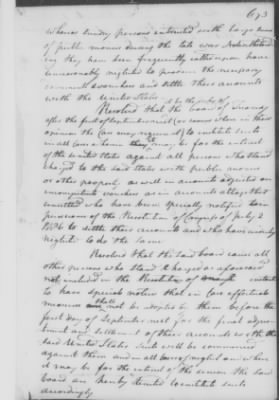 693
Whereas sundry persons entrusted with large sums
of public monies during the late war notwithstand
ing they have been frequently called upon have
unreasonably neglected to procure the necessary
vouchers and settle their accounts
with the United States
Resolved that the board of treasury
after the first of next (or sooner when in their
opinion the case may require it) to institute suits
in all cases where they may be for the interest
of the United States against all persons who stand
charged to the said states with public monies
or other property as well on accounts adjusted on
incompetent vouchers as on accounts altogether
unsettled who have been specially notified in
pursuance of the Resolution of Congress of July 2
to settle their accounts and who have
neglected to do the same
Resolved that the said board cause all
other persons who stand charged as aforesaid
not included in the Resolution of
to have special notice that in case effectual
measures shall not be adopted by them before the
first day of September next for the final adjust
ment and settlement of their accounts with the
said United States suits will be commenced
against them and in all cases of neglect and when
it may be for the interest of the union the said
board are hereby directed to institute suits
accordingly